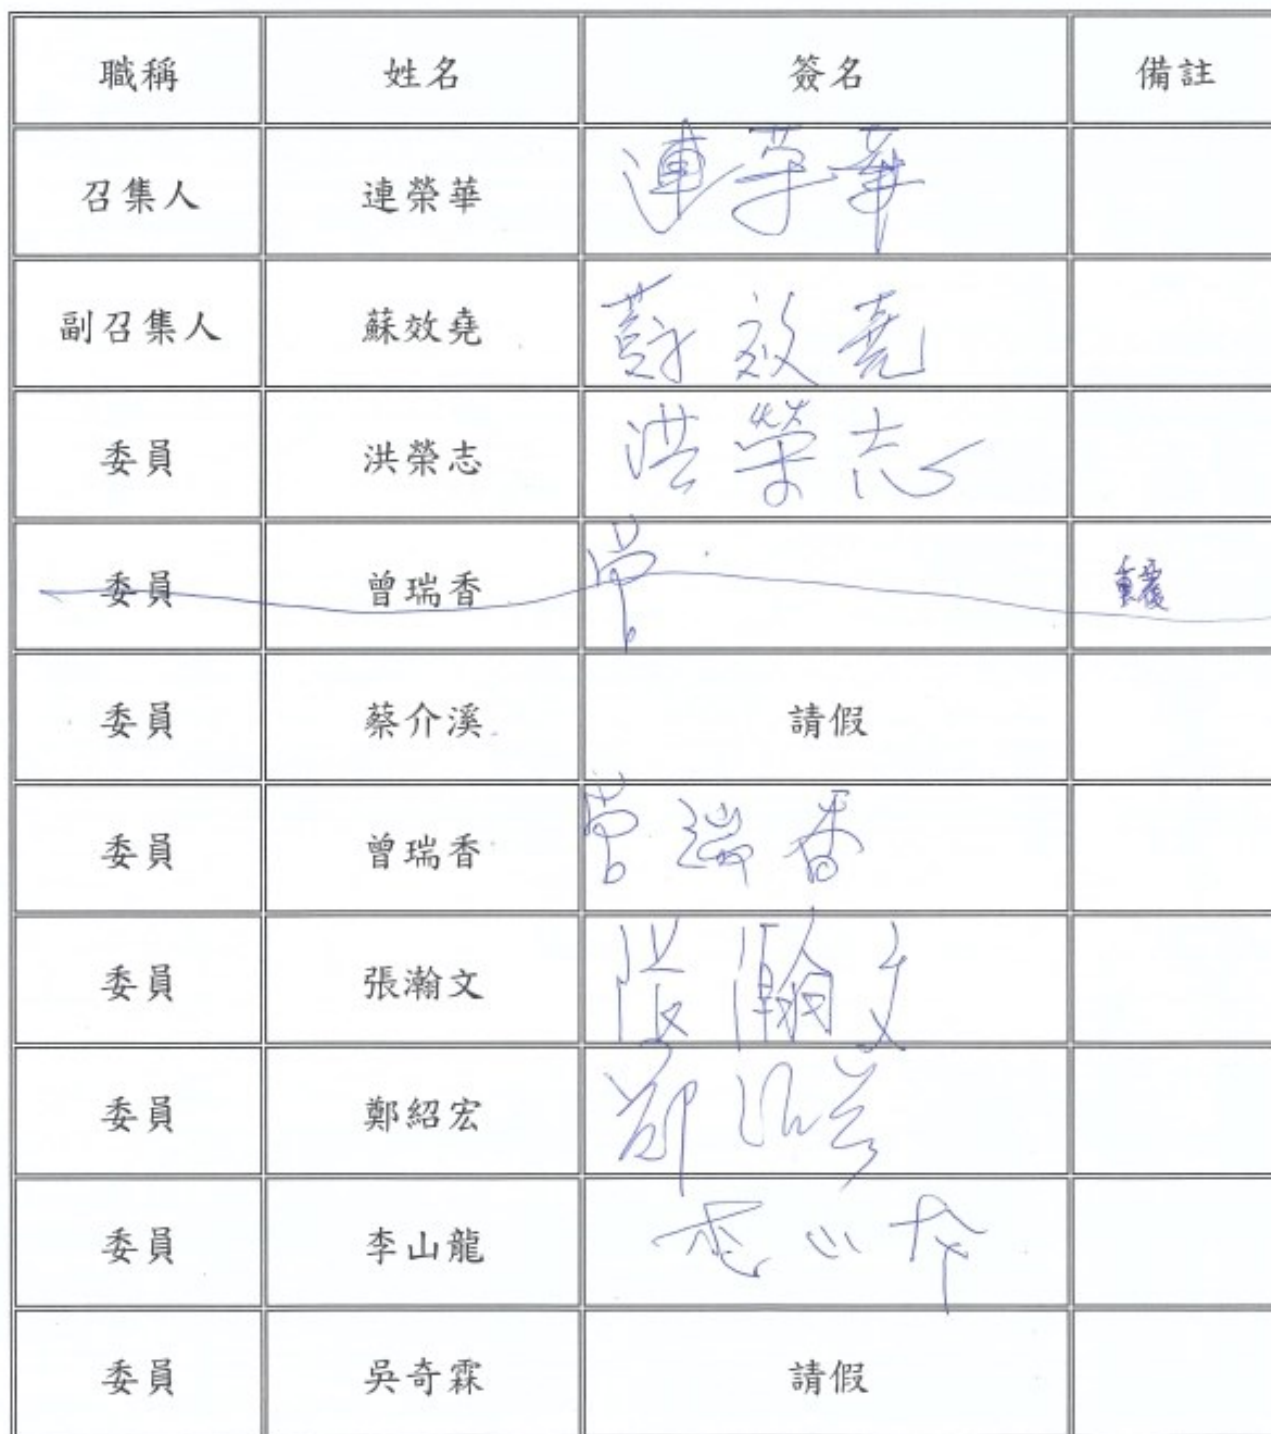 職稱 姓名 簽名 備註
召集人 連榮華 連荣華
副召集人 蘇效堯 蘇效堯
委員 洪榮志 洪榮志
委員 曾瑞香 曾 重覆
委員 蔡介溪 請假
委員 曾瑞香 曾瑞香
委員 張瀚文 張瀚文
委員 鄭紹宏 鄭紹宏
委員 李山龍 李山
委員 吳奇霖 請假